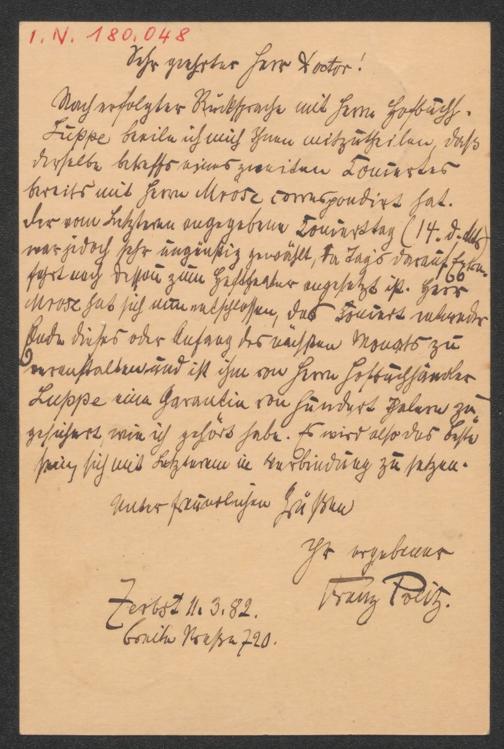 I. N. 180.048
Sehr geehrter Herr Doctor!
Nach erfolgter Rücksprache mit Herrn Hofbuchh.
Luppe beeile ich mich Ihnen mitzutheilen, daß
derselbe betreffs eines zweiten Concertes
bereits mit Herrn Mrose correspondirt hat.
Der vom Letzteren angegebene Concerttag (14. d. Mts)
war jedoch sehr ungünstig gewählt, da Tags darauf Extra-
fahrt nach Dessau zum Hoftheater angesetzt ist. Herr
Mrose hat sich nun entschlossen, das Concert entweder
Ende dieses oder Anfang des nächsten Monats zu
veranstalten und ist ihm von Herrn Hofbuchhändler
Luppe eine Garantie von hundert Thalern zu-
gesichert wie ich gehört habe. Es wird also das Beste
sein, sich mit Letzterem in Verbindung zu setzen.
Unter freundlichen Grüßen
Ihr ergebener
Franz Preitz.
Zerbst 11.3.82.
Breite Straße 720.